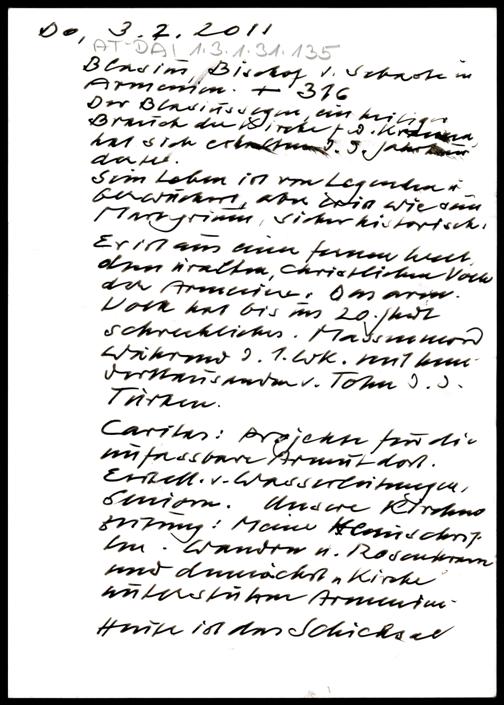 Do, 3.2.2011
AT-DAI 1.3.1.31.135
Blasius, Bischof v. Sebaste in
Armenien. + 316
Der Blasiussegen, ein heiliger
Brauch der Kirche f. d.
hat sich erhalten d. d. Jahrhun
derte.
Sein Leben ist von Legenden
aber er ist wie sein
Martyrium, sicher historisch.
Er ist aus einer fernen Welt,
dem uralten, christlichen Volk
der Armenier. Das arm.
Volk hat bis ins 20. Jhdt
schreckliches. Massenmord
während d. 1. WK. mit hun-
derttausenden v. Toten d. d.
Türken.
Caritas: Projekte für die
unfassbare Armut dort.
Erstell. v. Wasserleitungen,
Senioren. Unsere Kirchen
zeitung: Meine Kleinschrif-
ten. Wandern u. Rosenkranz
und demnächst "Kirche
unterstützen Armenien.
Heute ist das Schicksal